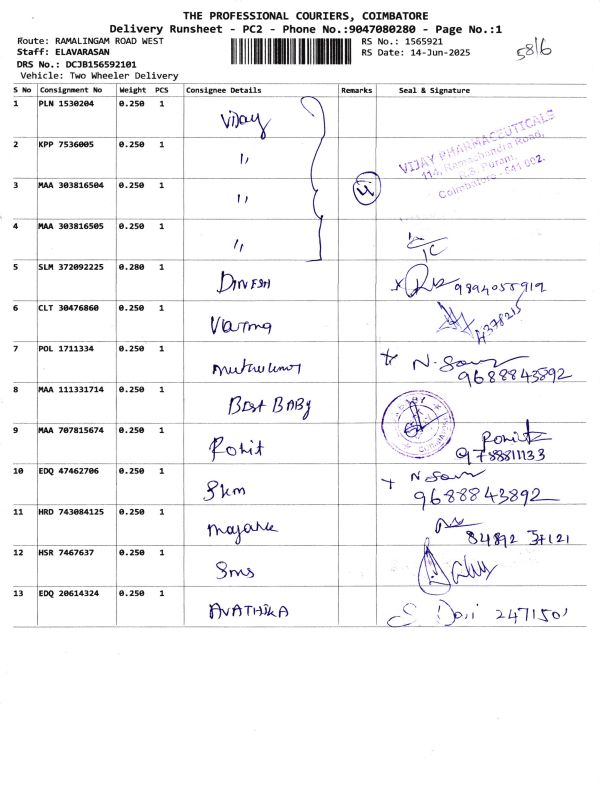 THE PROFESSIONAL COURIERS, COIMBATORE
Delivery Runsheet - PC2 - Phone No.:9047080280 - Page No.:1
Route: RAMALINGAM ROAD WEST RS No.: 1565921
Staff: ELAVARASAN RS Date: 14-Jun-2025
5816
DRS No.: DCJB156592101
Vehicle: Two Wheeler Delivery
S No Consignment No Weight PCS Consignee Details Remarks Seal & Signature
1 PLN 1530204 0.250 1 Vijay
VIJAY PHARMACEUTICALS
114, Ramachandra Road,
R.S. Puram,
Coimbatore - 641 002.
2 KPP 7536005 0.250 1 ,,
3 MAA 303816504 0.250 1 ,, 4
4 MAA 303816505 0.250 1 ,,
5 SLM 372092225 0.280 1 DINESH 9894055919
6 CLT 30476860 0.250 1 Varma 4378215
7 POL 1711334 0.250 1 N. 9688843892
8 MAA 111331714 0.250 1 BEST BABY
9 MAA 707815674 0.250 1 Rohit Rohit 9788811133
10 EDQ 47462706 0.250 1 Skm N 9688843892
11 HRD 743084125 0.250 1 84892 37121
12 HSR 7467637 0.250 1 Sms
13 EDQ 20614324 0.250 1 AVATHIKA S. 2471501